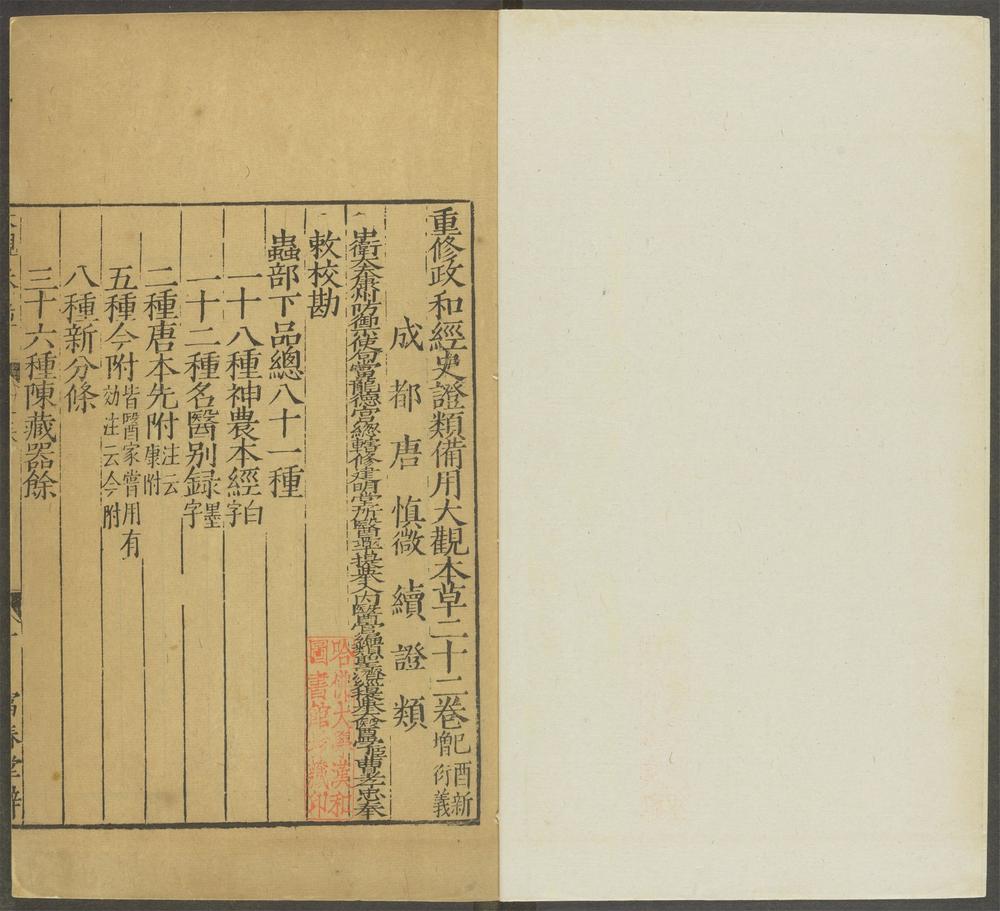 重修政和經史證類備用大觀本草二十二卷 己酉新增衍義
成都唐慎微續證類
中衛大夫康州防禦使句當龍德宮總轄修建明堂所醫藥提舉入內醫官編類聖濟經提舉太醫學臣曹孝忠奉
敕校勘
蟲部下品總八十一種
一十八種神農本經 白字
一十二種名醫别録 墨字
二種唐本先附 注云康附
五種今附 皆醫家嘗用有効注云今附
八種新分條
三十六種陳藏器餘
富春堂梓
哈佛大學漢和
圖書館珍藏印